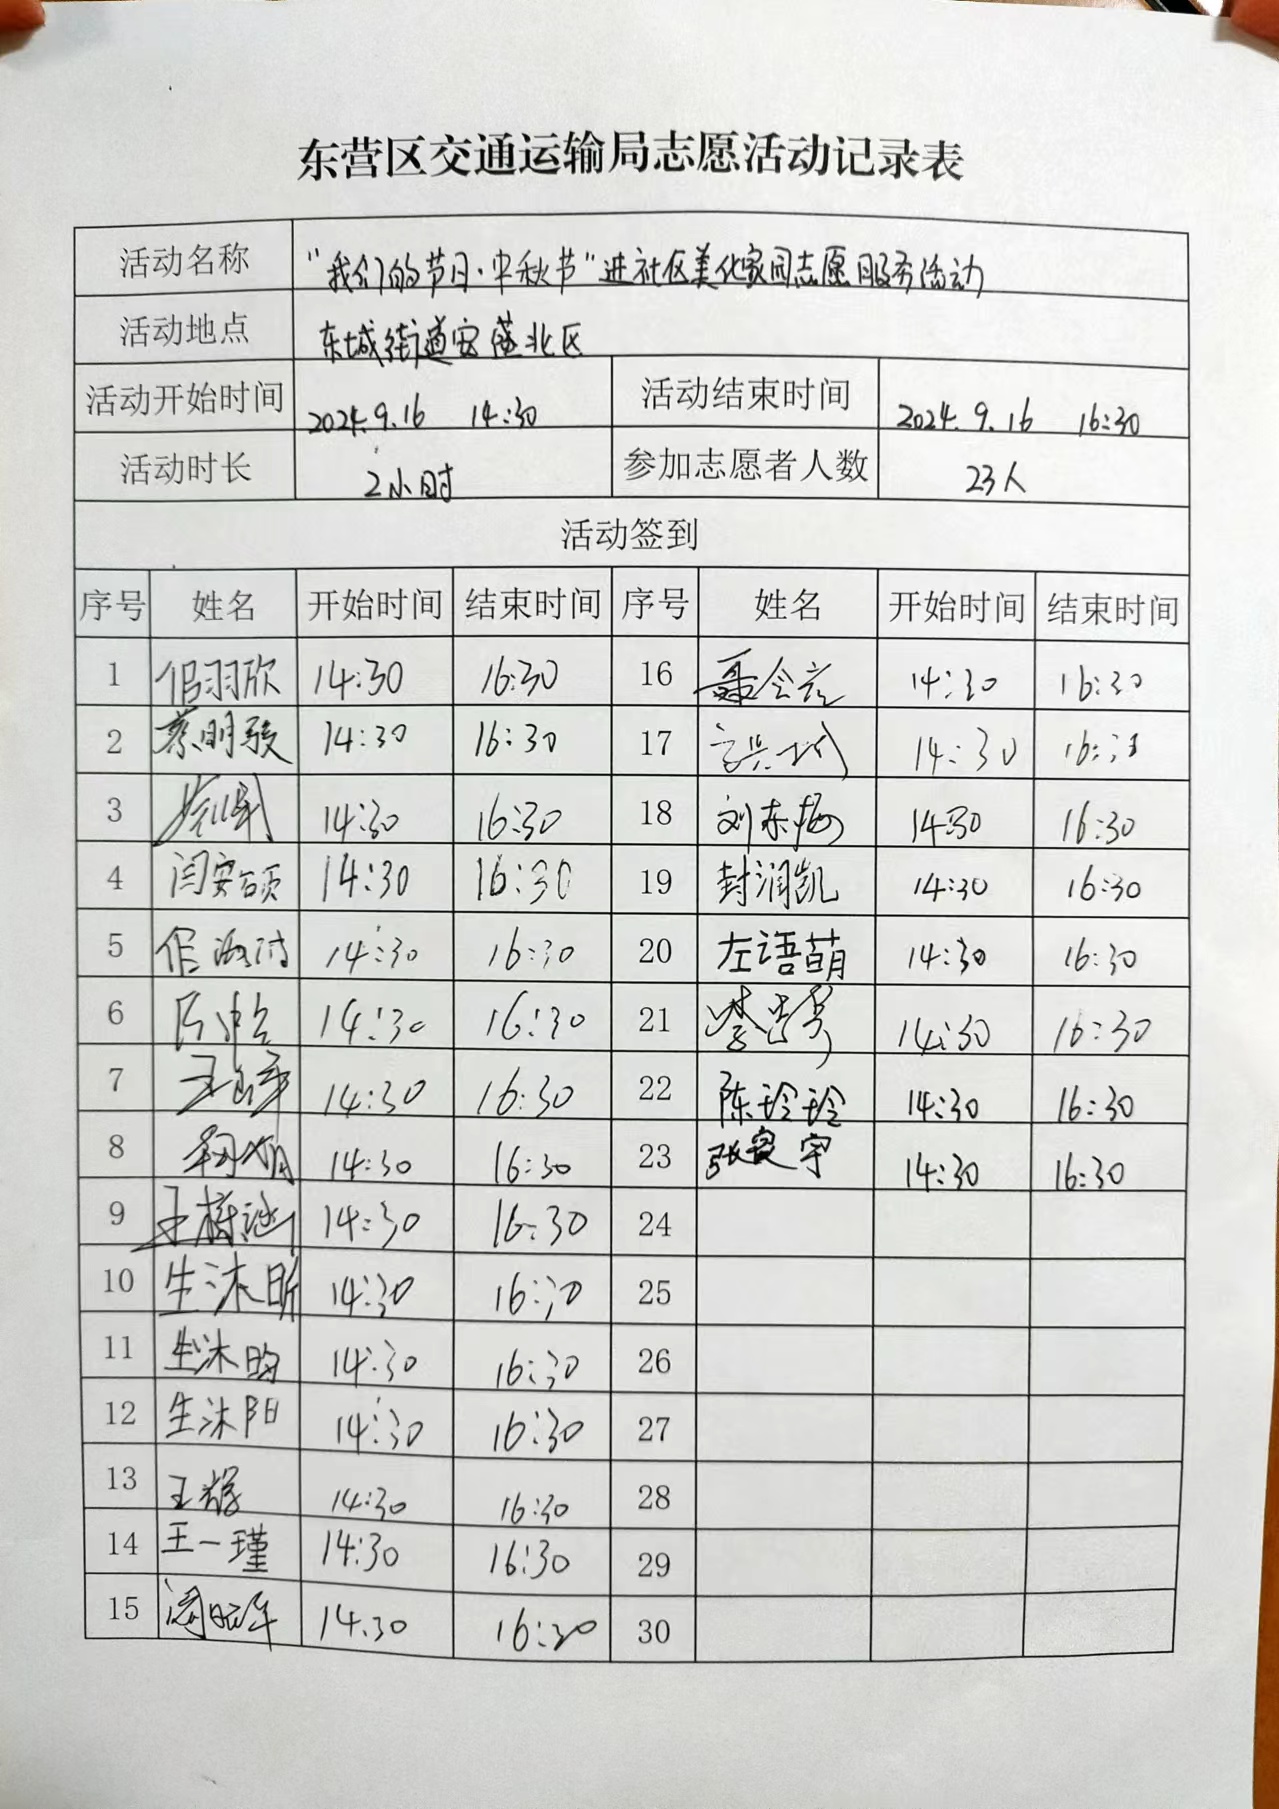 东营区交通运输局志愿活动记录表
活动名称 "我们的节日·中秋节"进社区美化家园志愿服务活动
活动地点 东城街道安莲北区
活动开始时间 2024.9.16 14:30 活动结束时间 2024.9.16 16:30
活动时长 2小时 参加志愿者人数 23人
活动签到
序号 姓名 开始时间 结束时间 序号 姓名 开始时间 结束时间
1 14:30 16:30 16 14:30 16:30
2 蔡明骏 14:30 16:30 17 14:30
3 14:30 16:30 18 刘东梅 1430 16:30
4 闫安硕 14:30 16:30 19 封润凯 14:30 16:30
5 14:30 16:30 20 左语萌 14:30 16:30
6 14:30 16:30 21 14:30 16:30
7 14:30 16:30 22 陈玲玲 14:30 16:30
8 14:30 16:30 23 14:30 16:30
9 14:30 16:30 24
10 生沐昕 14:30 16:30 25
11 生沐昀 14:30 16:30 26
12 生沐阳 14:30 16:30 27
13 14:30 16:30 28
14 王一瑾 14:30 16:30 29
15 14.30 16:30 30